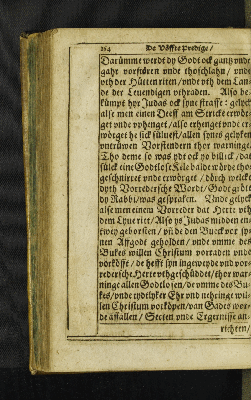 164 De Vöffte Predige /
Darümme werdt dy Godt ock gantz vnde
gahr vorstören vnde thoschlahn / vnde
vth der Hütten riten / vnde vth dem Lan-
de der Leuendigen vthraden. Also be-
kümpt hyr Judas ock syne straffe: gelyck
alse men einen Deeff am Stricke erwör-
get vnde vphenget / also erhenget vnde er-
wörget he sick süluest / allen synes gelyken
vntrüwen Vorstendern thor warninge.
Tho deme so was ydt ock yo billick / dat
sülck eine Godtlose Kele balde würde tho
geschnürret vnde erwörget / dörch welcke
dyth Vorredersche Wordt / Godt gröte
dy Rabbi / was gespraken. Vnde gelyck
alse men einen Vorreder dat Herte vth
dem Lyue rit / Also ys Judas midden en-
twey geborsten / vn de den Bueck vor sy-
nen Affgodt geholden / vnde vmme des
Bukes willen Christum vorraden vnde
vorköfft / de hefft syn ingeweyde vnd vor-
redersche Herte vthgeschüddet / thor war-
ninge allen Godtlosen / de vmme des Bu-
kes / vnde tydtlyker Ehr vnd neringe wil-
len Christum vorköpen / van Gades wor-
de affallen / Secten vnde Ergernisse an-
richten /